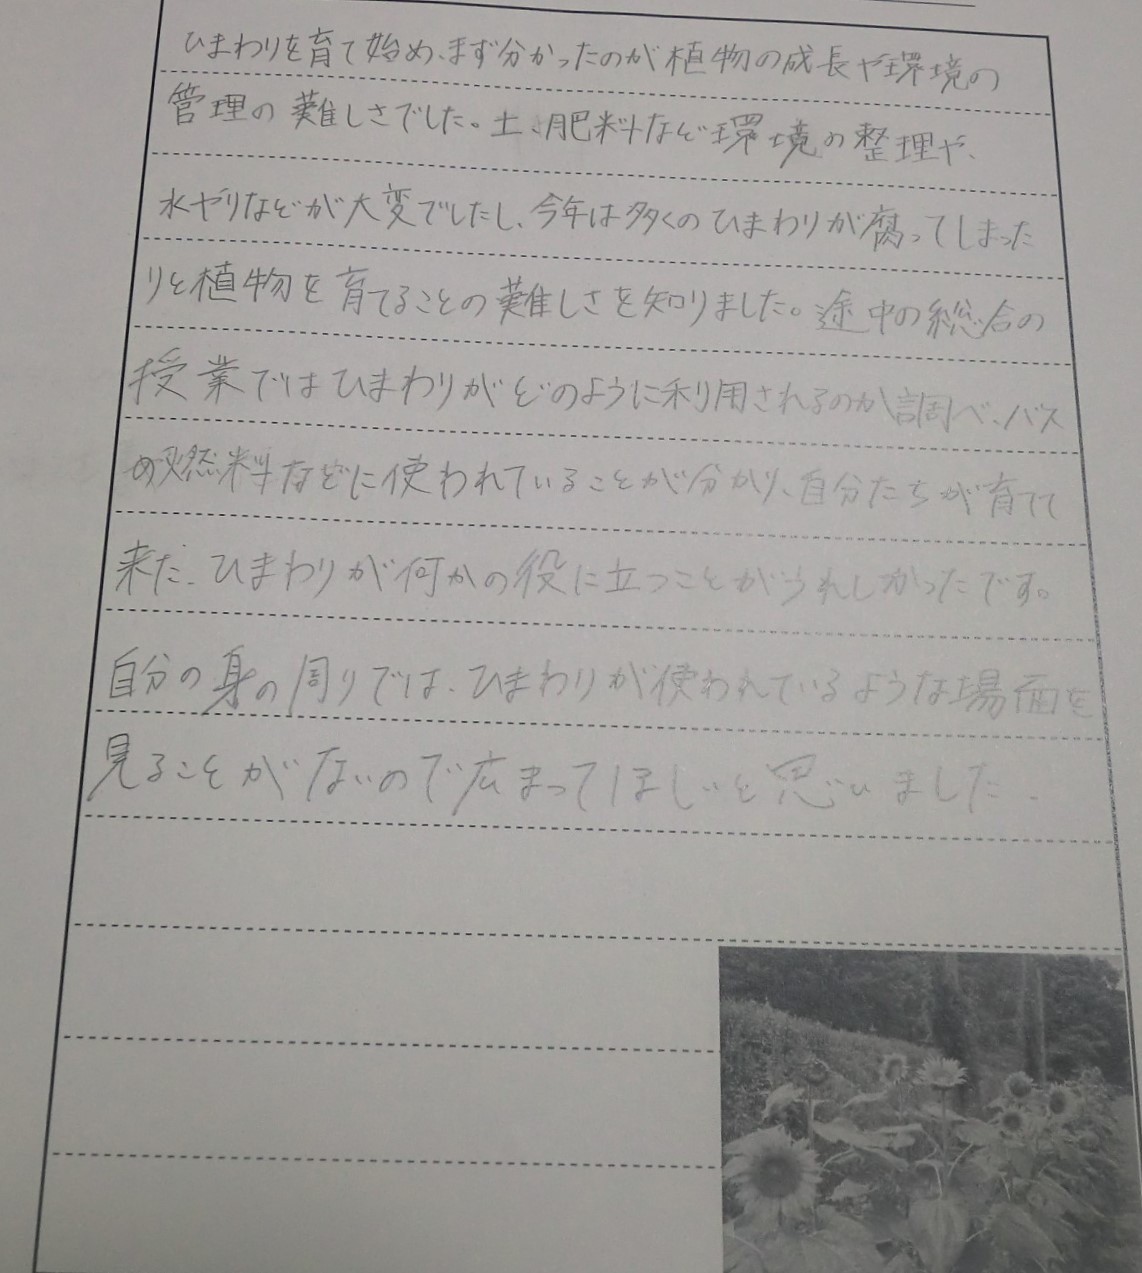 ひまわりを育て始め、まず分かったのが植物の成長や環境の
管理の難しさでした。土、肥料など環境の整理や、
水やりなどが大変でしたし、今年は多くのひまわりが腐ってしまった
りと植物を育てることの難しさを知りました。途中の総合の
授業ではひまわりがどのように利用されるのか調べ、バス
の燃料などに使われていることが分かり、自分たちが育てて
来た、ひまわりが何かの役に立つことがうれしかったです。
自分の身の周りでは、ひまわりが使われているような場面を
見ることがないので広まってほしいと思いました。